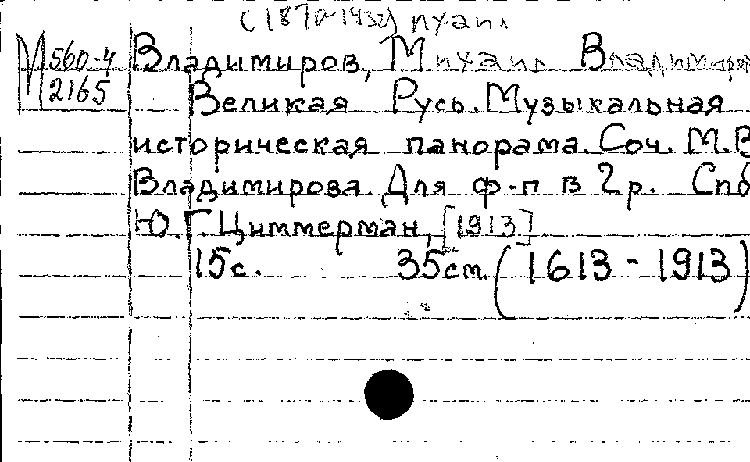 (1870-1932)
М 560-4 Владимиров, Михаил Владимиров
2165 Великая Русь. Музыкальная
историческая панорама. Соч. М.В
Владимирова. Для ф-п в 2 р. Спб
Ю.Г. Циммерман, [1913]
15 с. 35 см. (1613-1913)